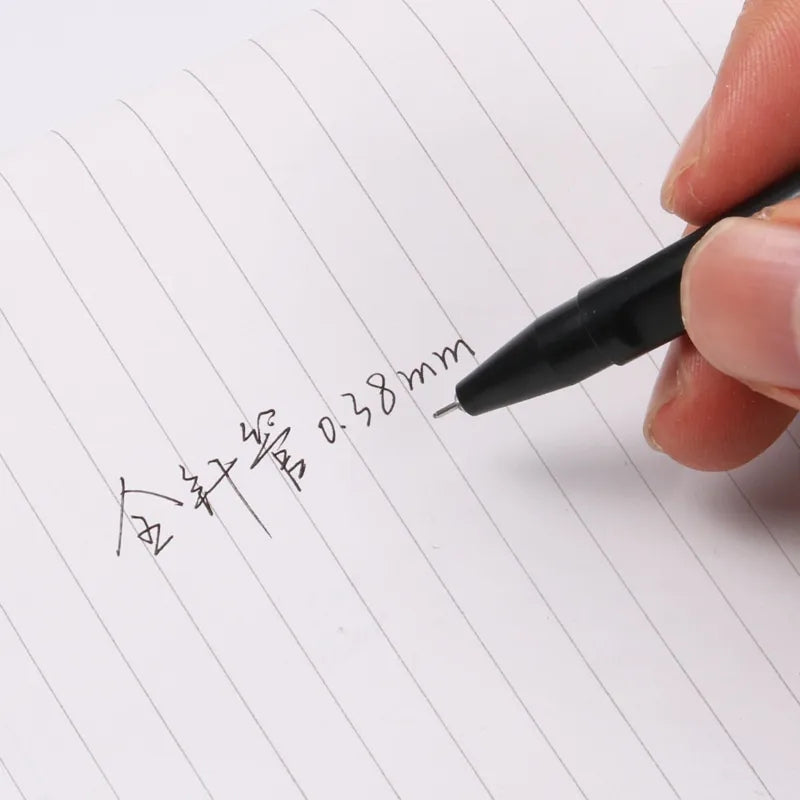 全针管0.38mm